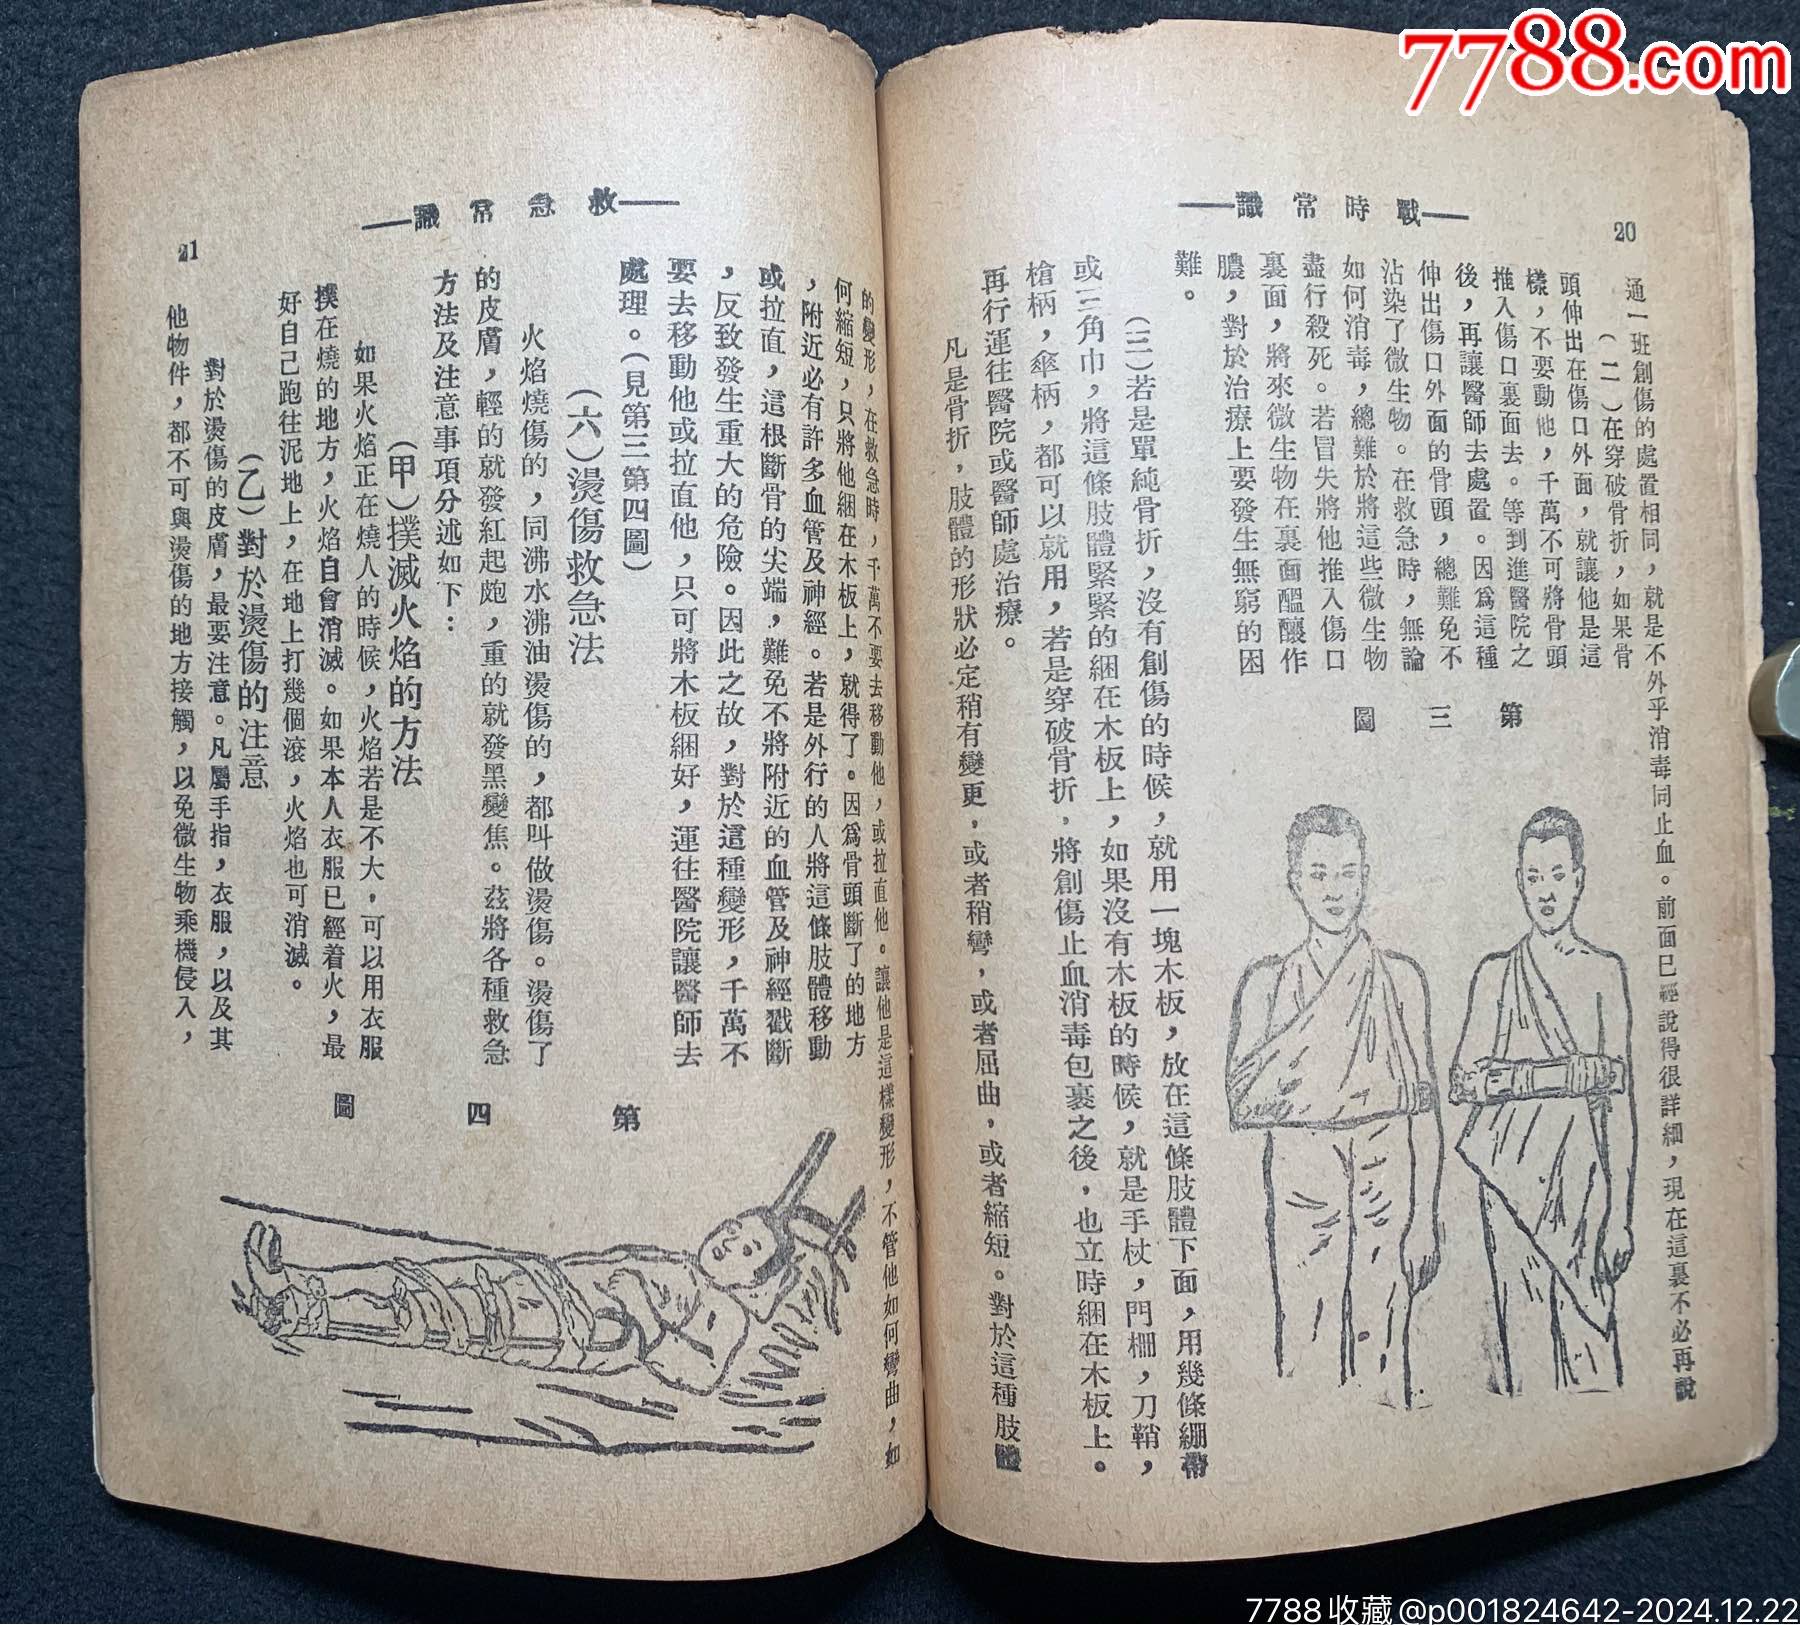 7788.com
—戰時常識—
20
通一班創傷的處置相同，就是不外乎消毒同止血。前面已經說得很詳細，現在這裏不必再說
（二）在穿破骨折，如果骨
頭伸出在傷口外面，就讓他是這
樣，不要動他，千萬不可將骨頭
推入傷口裏面去。等到進醫院之
後，再讓醫師去處置。因爲這種
伸出傷口外面的骨頭，總難免不
沾染了微生物。在救急時，無論
如何消毒，總難於將這些微生物
盡行殺死。若冒失將他推入傷口
裏面，將來微生物在裏面醞釀作
膿，對於治療上要發生無窮的困
難。
第三圖
（三）若是單純骨折，沒有創傷的時候，就用一塊木板，放在這條肢體下面，用幾條綳帶
或三角巾，將這條肢體緊緊的綑在木板上，如果沒有木板的時候，就是手杖，門柵，刀鞘，
槍柄，傘柄，都可以就用，若是穿破骨折，將創傷止血消毒包裹之後，也立時綑在木板上。
再行運往醫院或醫師處治療。
凡是骨折，肢體的形狀必定稍有變更，或者稍彎，或者屈曲，或者縮短。對於這種肢體
—救急常識—
21
的變形，在救急時，千萬不要去移動他，或拉直他。讓他是這樣變形，不管他如何彎曲，如
何縮短，只將他綑在木板上，就得了。因爲骨頭斷了的地方
，附近必有許多血管及神經。若是外行的人將這條肢體移動
或拉直，這根斷骨的尖端，難免不將附近的血管及神經戳斷
，反致發生重大的危險。因此之故，對於這種變形，千萬不
要去移動他或拉直他，只可將木板綑好，運往醫院讓醫師去
處理。（見第三第四圖）
（六）燙傷救急法
火焰燒傷的，同沸水沸油燙傷的，都叫做燙傷。燙傷了
的皮膚，輕的就發紅起皰，重的就發黑變焦。茲將各種救急
方法及注意事項分述如下：
（甲）撲滅火焰的方法
如果火焰正在燒人的時候，火焰若是不大，可以用衣服
撲在燒的地方，火焰自會消滅。如果本人衣服已經着火，最
好自己跑往泥地上，在地上打幾個滾，火焰也可消滅。
（乙）對於燙傷的注意
對於燙傷的皮膚，最要注意。凡屬手指，衣服，以及其
他物件，都不可與燙傷的地方接觸，以免微生物乘機侵入，
第四圖
7788收藏@p001824642-2024.12.22